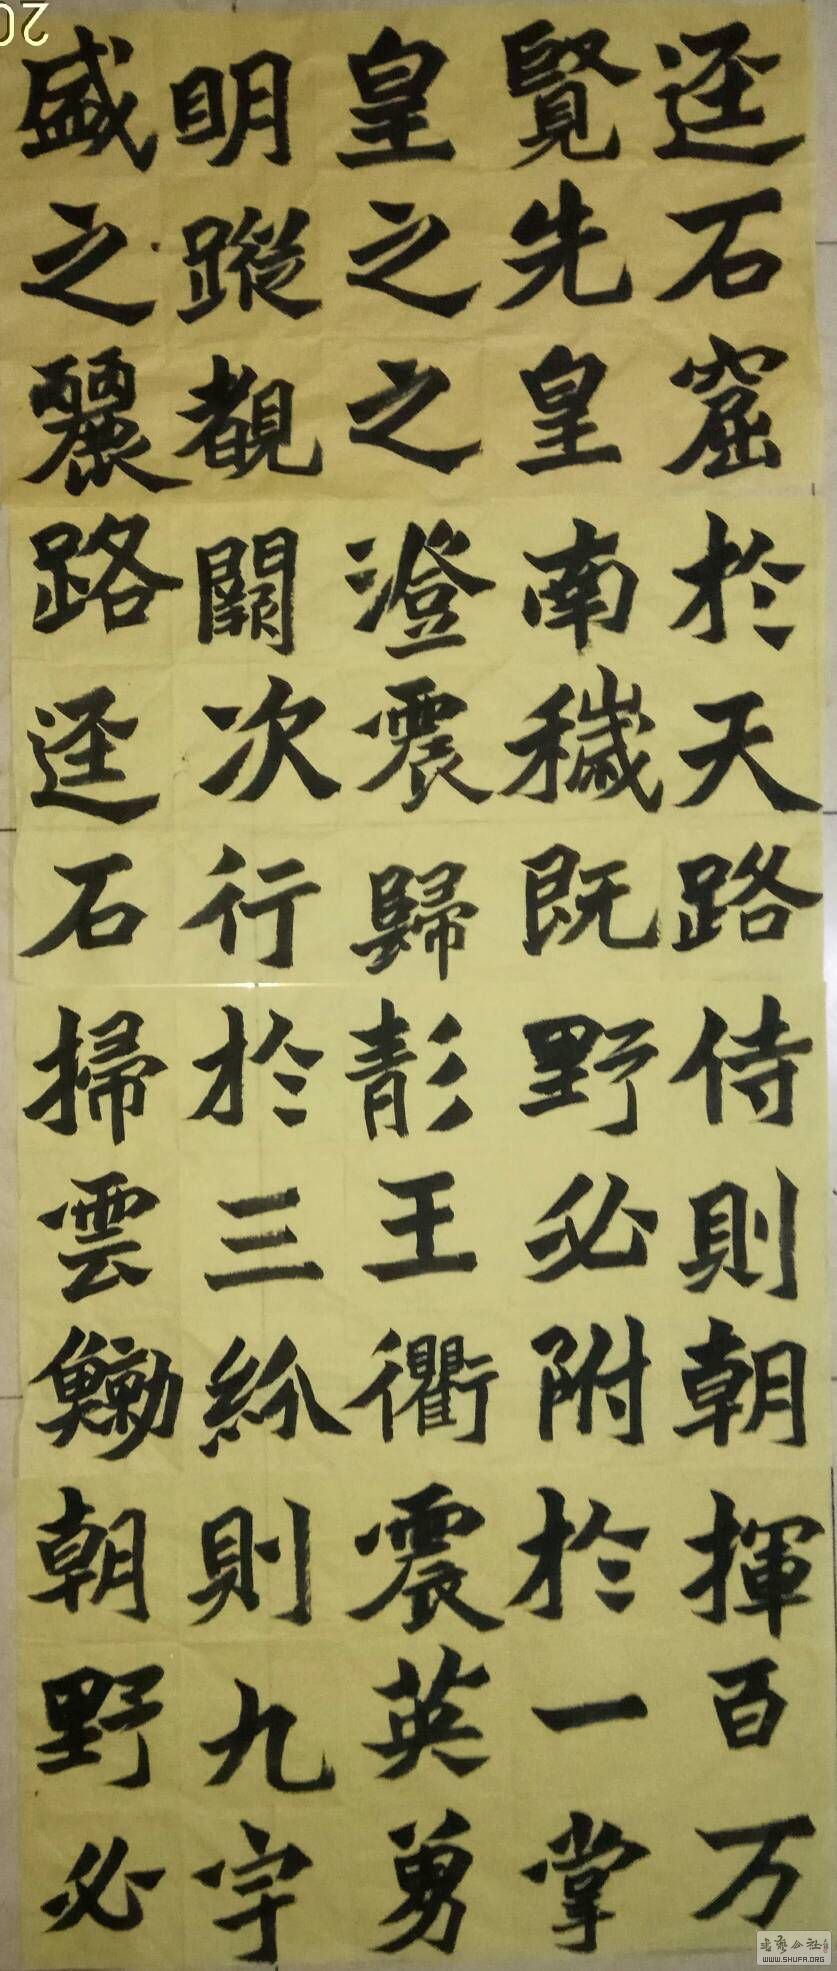 迳石窟於天路侍則朝揮百万
賢先皇南穢既野必附於一掌
皇之之澄震歸彰王衢震英勇
明蹤觀闕次行於三紛則九宇
盛之麗路迳石掃雲朝野必
20
書藝公社
WWW.SHUFA.ORG